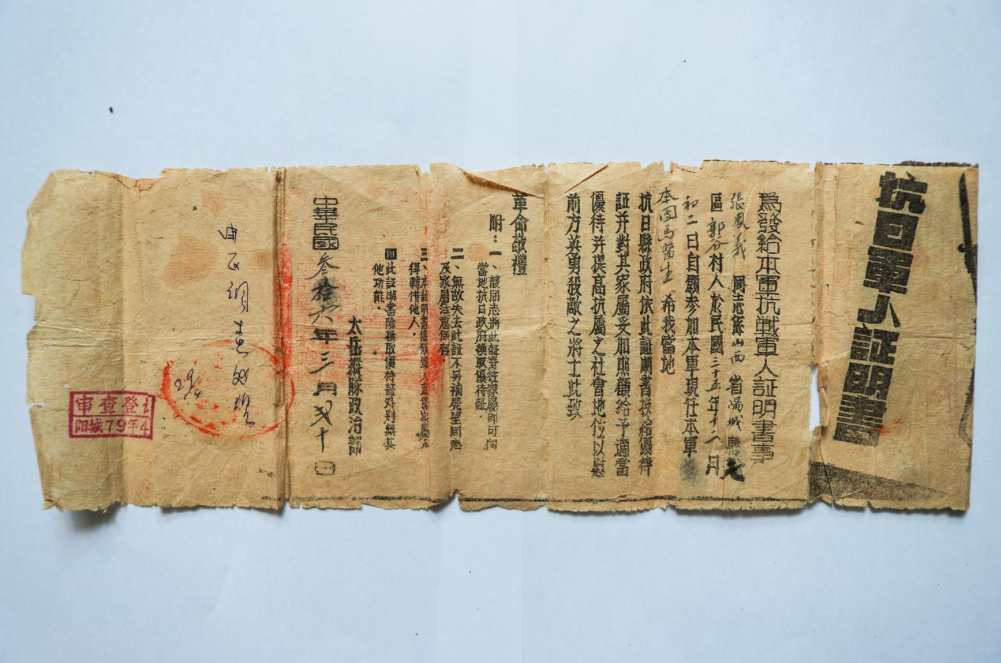 抗日軍人証明書
爲發給本軍抗戰軍人証明書事
張鳳義 同志係山西省陽城縣
區郭谷村人於民國三十五年十一月
初二日自願参加本軍現任本軍
本団馬醫生 希我當地
抗日縣政府依此証明書換給優待
証并對其家屬妥加照顧給予適當
優待并提高抗屬之社會地位以慰
前方英勇殺敵之將士此致
革命敬禮
附：一、該同志將此証寄往家屬即可向
當地抗日政府換取優待証。
二、無故失去此証不另補發望同志
及家屬注意保存
三、本証明書
得轉借他人。
四 此証明書除換取優待証外别無其
他功能。
太岳縱隊政治部
中華民國叁拾六年三月弍十日
29/4
審查登
阳城79年4